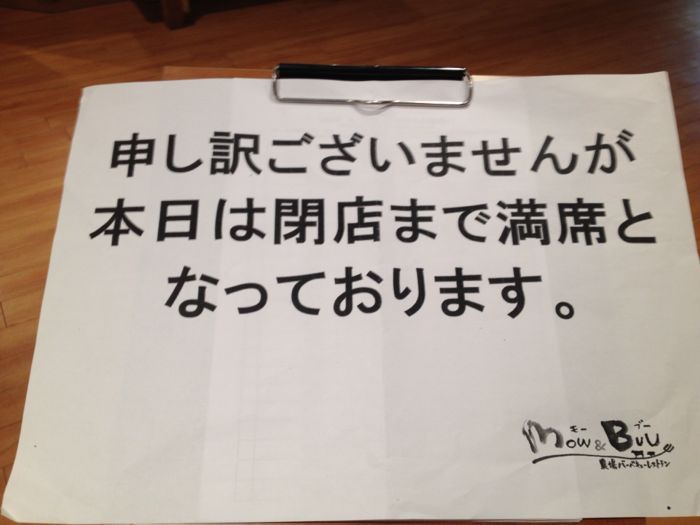 申し訳ございませんが
本日は閉店まで満席と
なっております。
モー ブー
Mow & BUU
農場バーベキューレストラン